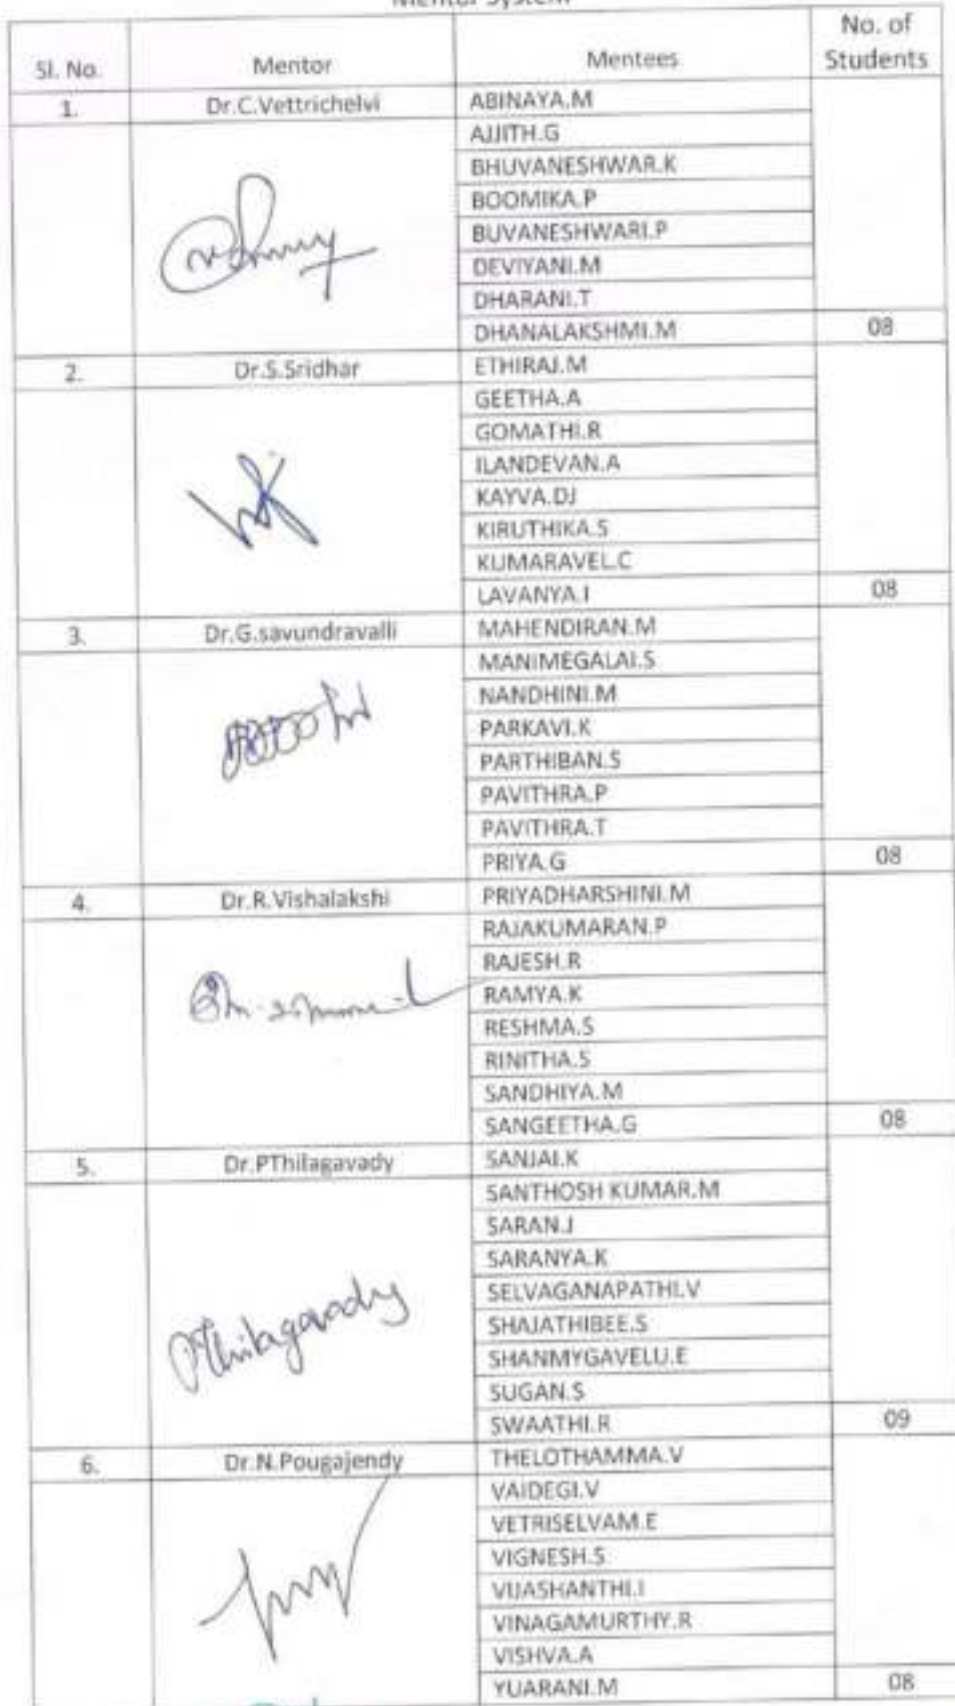 Mentor System
Sl. No. Mentor Mentees No. of Students
1. Dr.C.Vettrichelvi ABINAYA.M
AJJITH.G
BHUVANESHWAR.K
BOOMIKA.P
BUVANESHWARI.P
DEVIYANI.M
DHARANI.T
DHANALAKSHMI.M 08
2. Dr.S.Sridhar ETHIRAJ.M
GEETHA.A
GOMATHI.R
ILANDEVAN.A
KAYVA.DJ
KIRUTHIKA.S
KUMARAVEL.C
LAVANYA.I 08
3. Dr.G.savundravalli MAHENDIRAN.M
MANIMEGALAI.S
NANDHINI.M
PARKAVI.K
PARTHIBAN.S
PAVITHRA.P
PAVITHRA.T
PRIYA.G 08
4. Dr.R.Vishalakshi PRIYADHARSHINI.M
RAJAKUMARAN.P
RAJESH.R
RAMYA.K
RESHMA.S
RINITHA.S
SANDHIYA.M
SANGEETHA.G 08
5. Dr.PThilagavady SANJAI.K
SANTHOSH KUMAR.M
SARAN.J
SARANYA.K
SELVAGANAPATHI.V
PThilagavady SHAJATHIBEE.S
SHANMYGAVELU.E
SUGAN.S
SWAATHI.R 09
6. Dr.N.Pougajendy THELOTHAMMA.V
VAIDEGI.V
VETRISELVAM.E
VIGNESH.S
VIJASHANTHI.I
VINAGAMURTHY.R
VISHVA.A
YUARANI.M 08